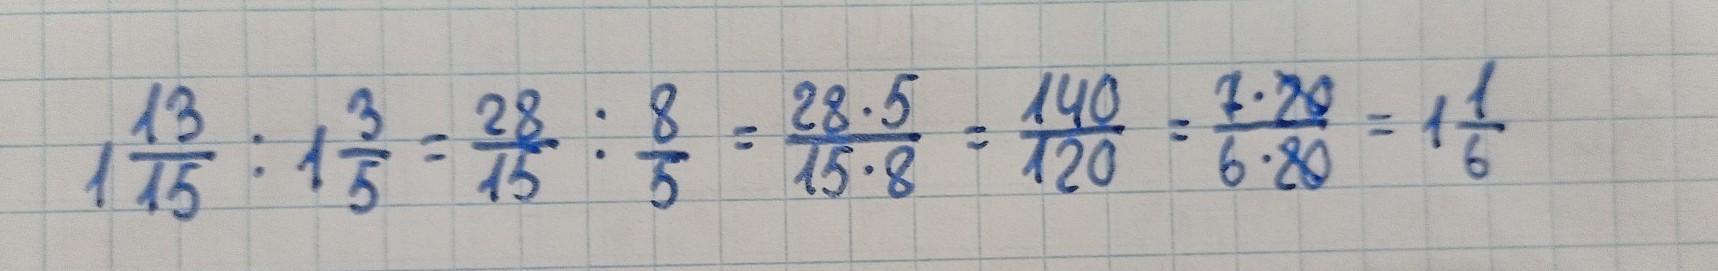 1 13/15 : 1 3/5 = 28/15 : 8/5 = 28·5/15·8 = 140/120 = 7·20/6·20 = 1 1/6